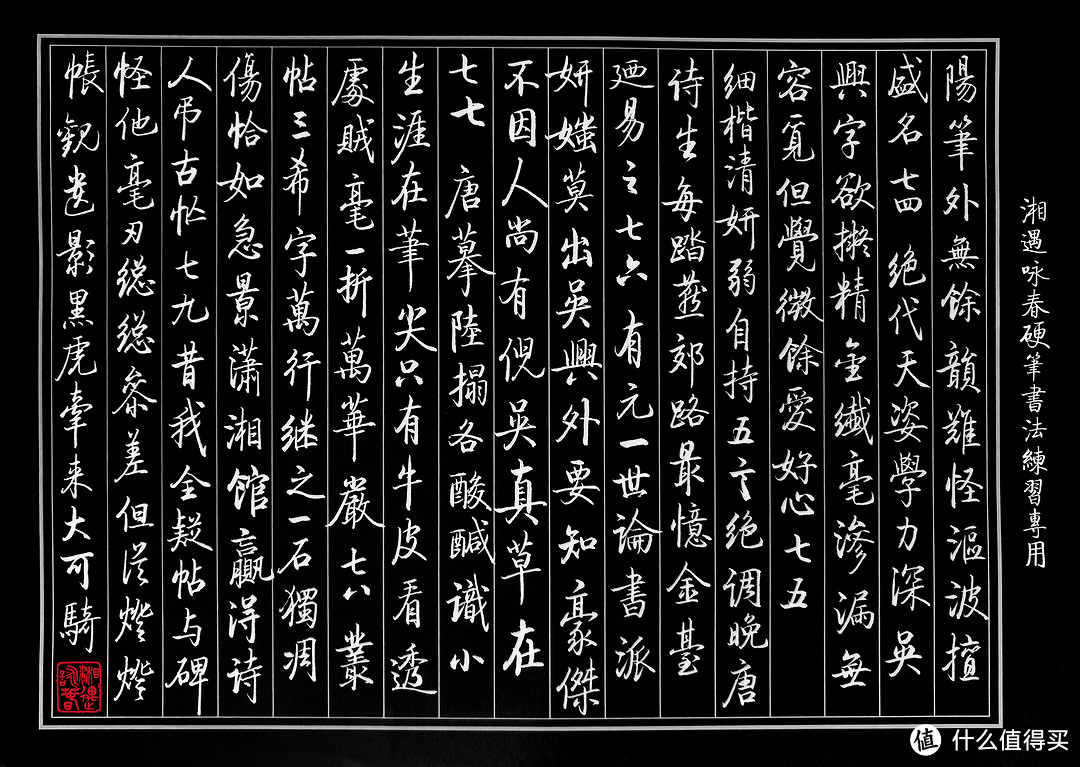 湘遇咏春硬筆書法練習專用
陽筆外無餘韻難怪漚波擅
盛名七四 絕代天姿學力深吳
興字欲擬精金纖毫滲漏無
容覓但覺微餘愛好心七五
細楷清妍弱自持五言絕调晚唐
诗生每踏燕郊路最憶金臺
廼易之七六 有元一世論書派
妍媸莫出吳興外要知豪傑
不因人尚有倪吳真草在
七七 唐摹陸搨各酸鹹識小
生涯在筆尖只有牛皮看透
處賊毫一折萬華嚴七八 叢
帖三希字萬行继之一石獨凋
傷恰如急景瀟湘館贏得诗
人吊古忙七九 昔我全疑帖与碑
怪他毫刃總總參差但從燈燈
帳觀遺影黑虎牽来大可騎
湘遇詠春
值 什么值得买